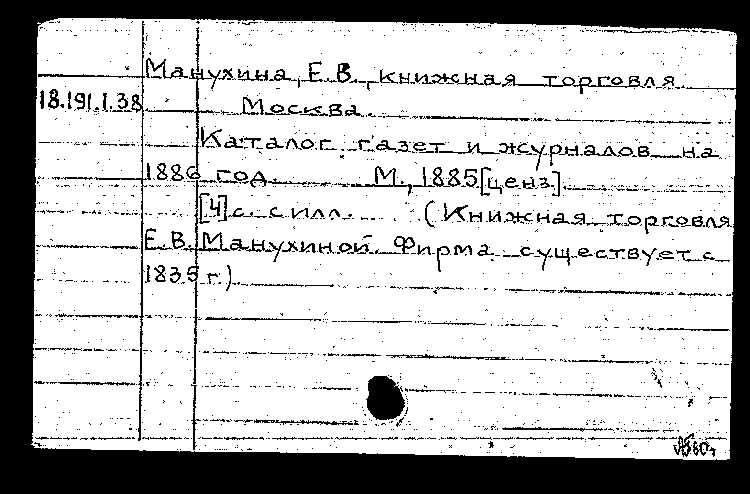 Манухина, Е.В., книжная торговля
18.191.I.38 Москва.
Каталог газет и журналов на
1886 год. М., 1885[ценз.].
[4]с. с илл. (Книжная торговля
Е.В. Манухиной. Фирма существует с
1835 г.)